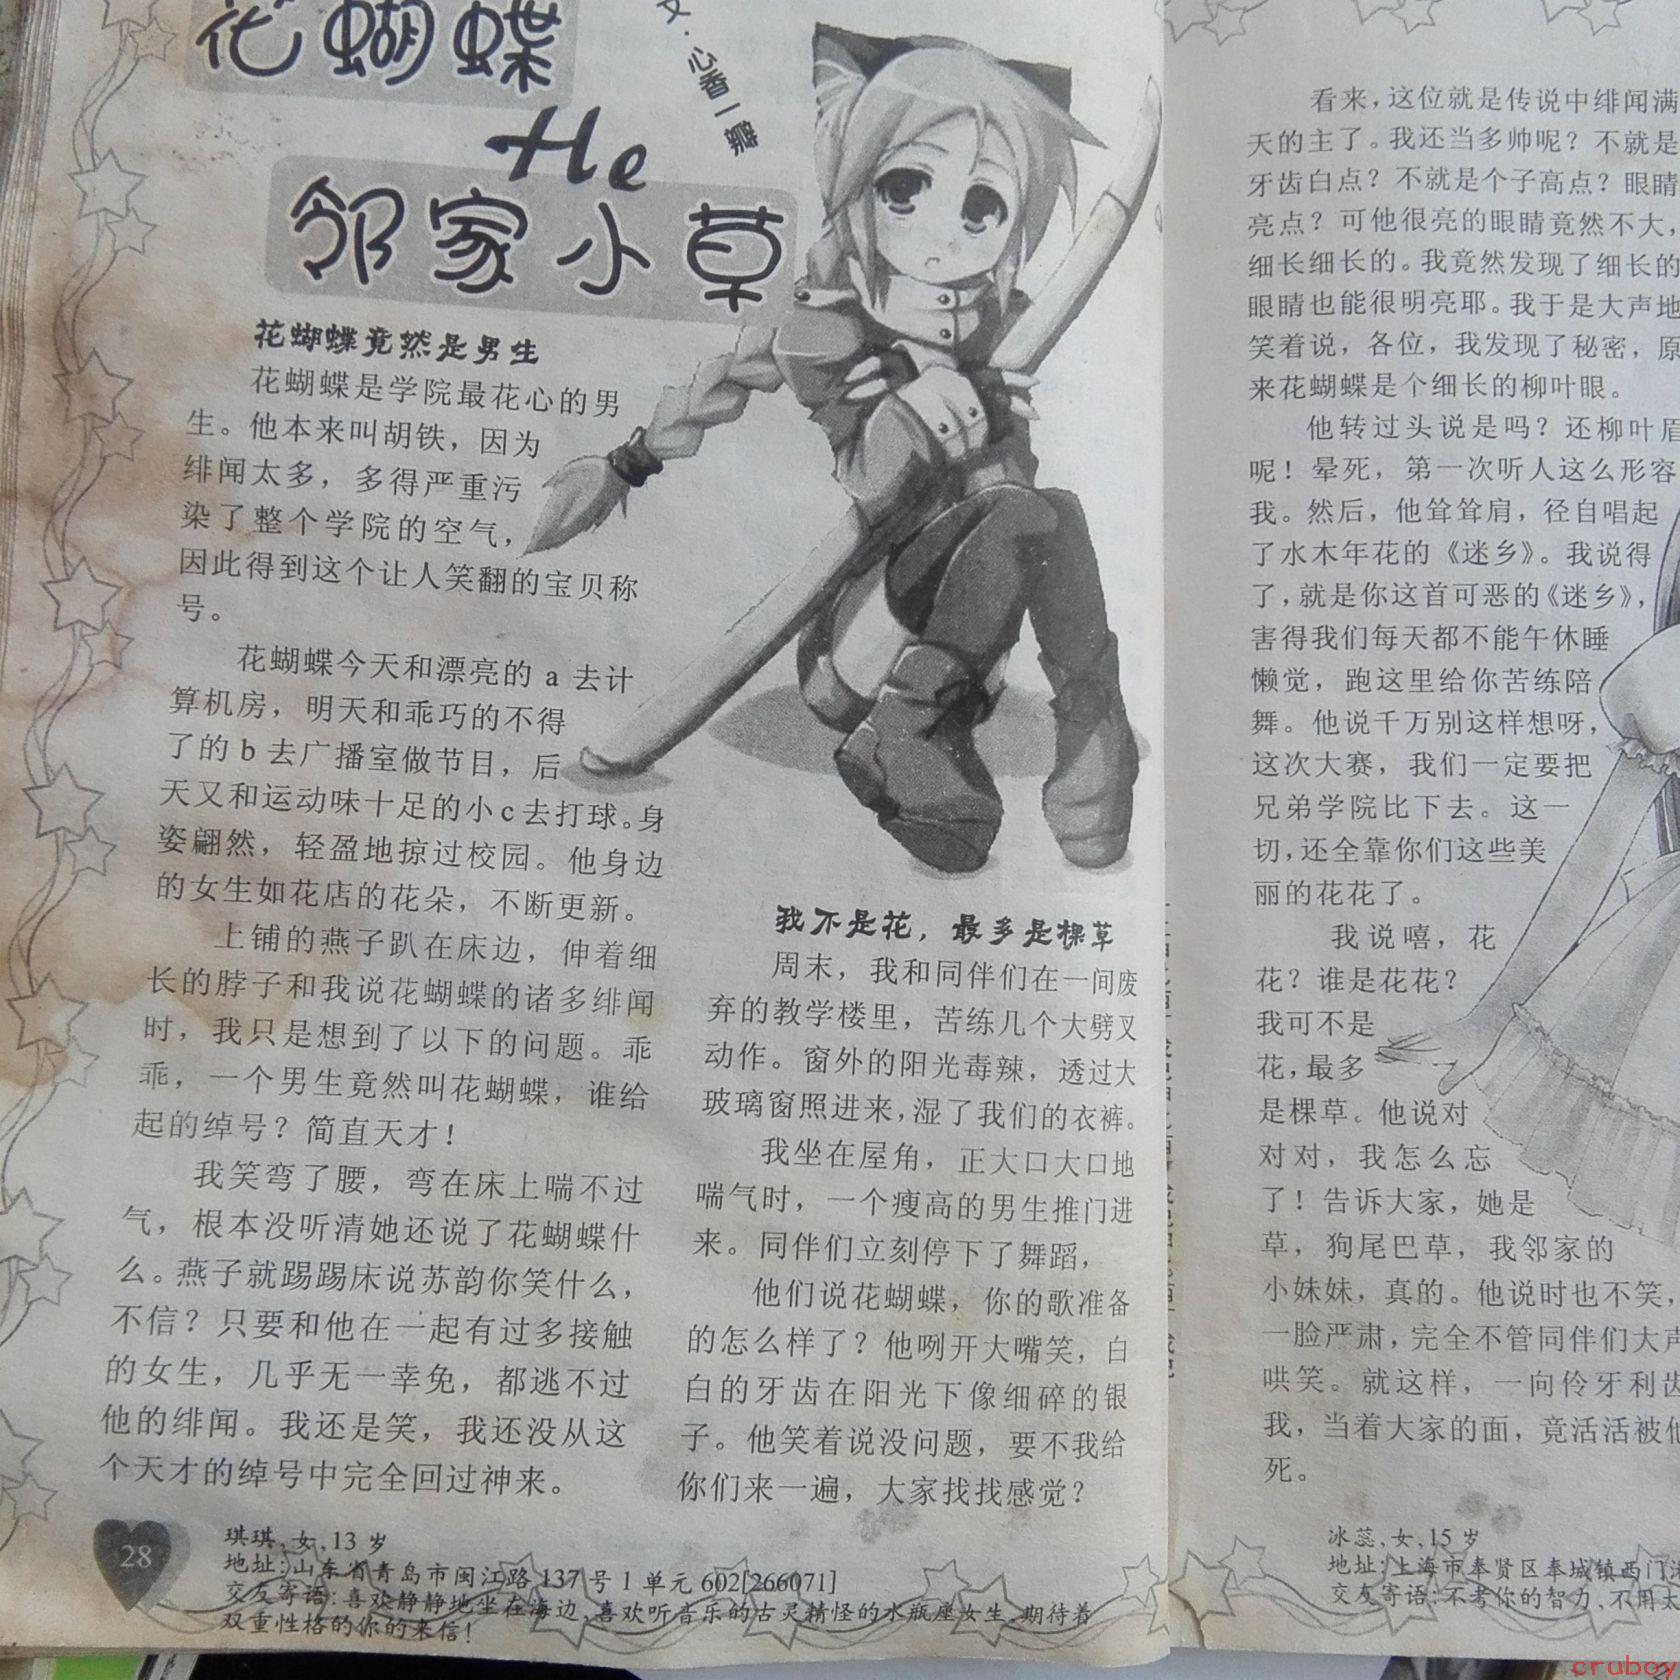 花蝴蝶
文·心香一瓣
He
邻家小草
花蝴蝶竟然是男生
花蝴蝶是学院最花心的男
生。他本来叫胡铁，因为
绯闻太多，多得严重污
染了整个学院的空气，
因此得到这个让人笑翻的宝贝称
号。
花蝴蝶今天和漂亮的 a 去计
算机房，明天和乖巧的不得
了的 b 去广播室做节目，后
天又和运动味十足的小c去打球。身
姿翩然，轻盈地掠过校园。他身边
的女生如花店的花朵，不断更新。
上铺的燕子趴在床边，伸着细
长的脖子和我说花蝴蝶的诸多绯闻
时，我只是想到了以下的问题。乖
乖，一个男生竟然叫花蝴蝶，谁给
起的绰号？简直天才！
我笑弯了腰，弯在床上喘不过
气，根本没听清她还说了花蝴蝶什
么。燕子就踢踢床说苏韵你笑什么，
不信？只要和他在一起有过多接触
的女生，几乎无一幸免，都逃不过
他的绯闻。我还是笑，我还没从这
个天才的绰号中完全回过神来。
我不是花，最多是棵草
周末，我和同伴们在一间废
弃的教学楼里，苦练几个大劈叉
动作。窗外的阳光毒辣，透过大
玻璃窗照进来，湿了我们的衣裤。
我坐在屋角，正大口大口地
喘气时，一个瘦高的男生推门进
来。同伴们立刻停下了舞蹈，
他们说花蝴蝶，你的歌准备
的怎么样了？他咧开大嘴笑，白
白的牙齿在阳光下像细碎的银
子。他笑着说没问题，要不我给
你们来一遍，大家找找感觉？
28
琪琪，女，13 岁
地址：山东省青岛市闽江路 137 号 1 单元 602[266071]
交友寄语：喜欢静静地坐在海边，喜欢听音乐的古灵精怪的水瓶座女生，期待着
双重性格的你的来信！
看来，这位就是传说中绯闻满
天的主了。我还当多帅呢？不就是
牙齿白点？不就是个子高点？眼睛
亮点？可他很亮的眼睛竟然不大，
细长细长的。我竟然发现了细长的
眼睛也能很明亮耶。我于是大声地
笑着说，各位，我发现了秘密，原
来花蝴蝶是个细长的柳叶眼。
他转过头说是吗？还柳叶眉
呢！晕死，第一次听人这么形容
我。然后，他耸耸肩，径自唱起
了水木年花的《迷乡》。我说得
了，就是你这首可恶的《迷乡》，
害得我们每天都不能午休睡
懒觉，跑这里给你苦练陪
舞。他说千万别这样想呀，
这次大赛，我们一定要把
兄弟学院比下去。这一
切，还全靠你们这些美
丽的花花了。
我说嘻，花
花？谁是花花？
我可不是
花，最多
是棵草。他说对
对对，我怎么忘
了！告诉大家，她是
草，狗尾巴草，我邻家的
小妹妹，真的。他说时也不笑，
一脸严肃，完全不管同伴们大声
哄笑。就这样，一向伶牙利齿
我，当着大家的面，竟活活被他
死。
冰蕊，女，15 岁
地址：上海市奉贤区奉城镇西门
交友寄语：不考你的智力，不用太
cruboy